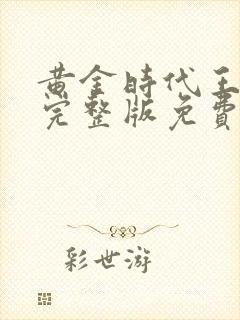 黄金時代王
完整版免費
彩世游